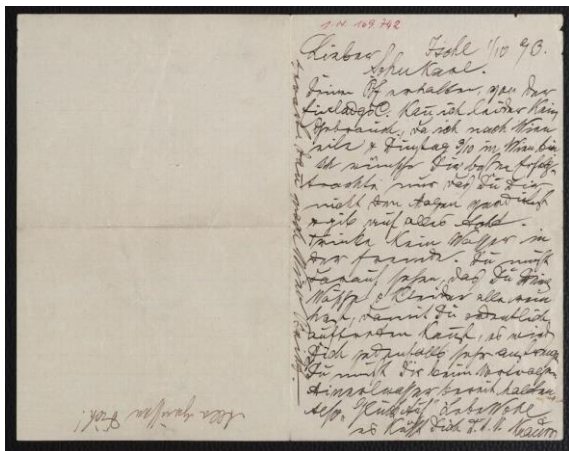 I.N. 169.742
Lieber Ischl 1/10 93.
Sohn Karl.
Deinen Bf erhalten, von der
Kan ich leider kein
Gebrauch, da ich nach Wien
eile & Dinstag 3/10 in Wien bin
Ich wünsche Dir besten Erfolg
trachte nur daß Du Dir
nicht den Magen verdirbst
& gib auf alles Acht.
Trinke kein Wasser in
der Fremde. Du mußt
darauf sehen, daß Du Deine
Wäsche & Kleider alle rein
hast, damit Du ordentlich
auftreten kanst, es wird
Dich jedenfalls sehr anstrengen
Du mußt Dir beim
Mineralwasser bereit halten
Also Lebewohl
es küßt Dich
Alle grüssen Dich!